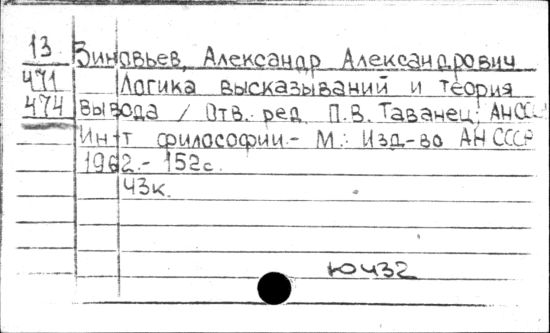 13 Зиновьев, Александр Александрович
471 Логика высказываний и теория
474 вывода / Отв. ред. П.В. Таванец; АН СССР
Ин-т философии.- М.: Изд-во АН СССР
1962.- 152с.
43к.
Ю432